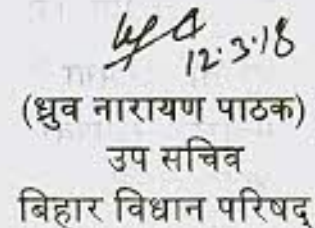 12.3.18
(ध्रुव नारायण पाठक)
उप सचिव
बिहार विधान परिषद्